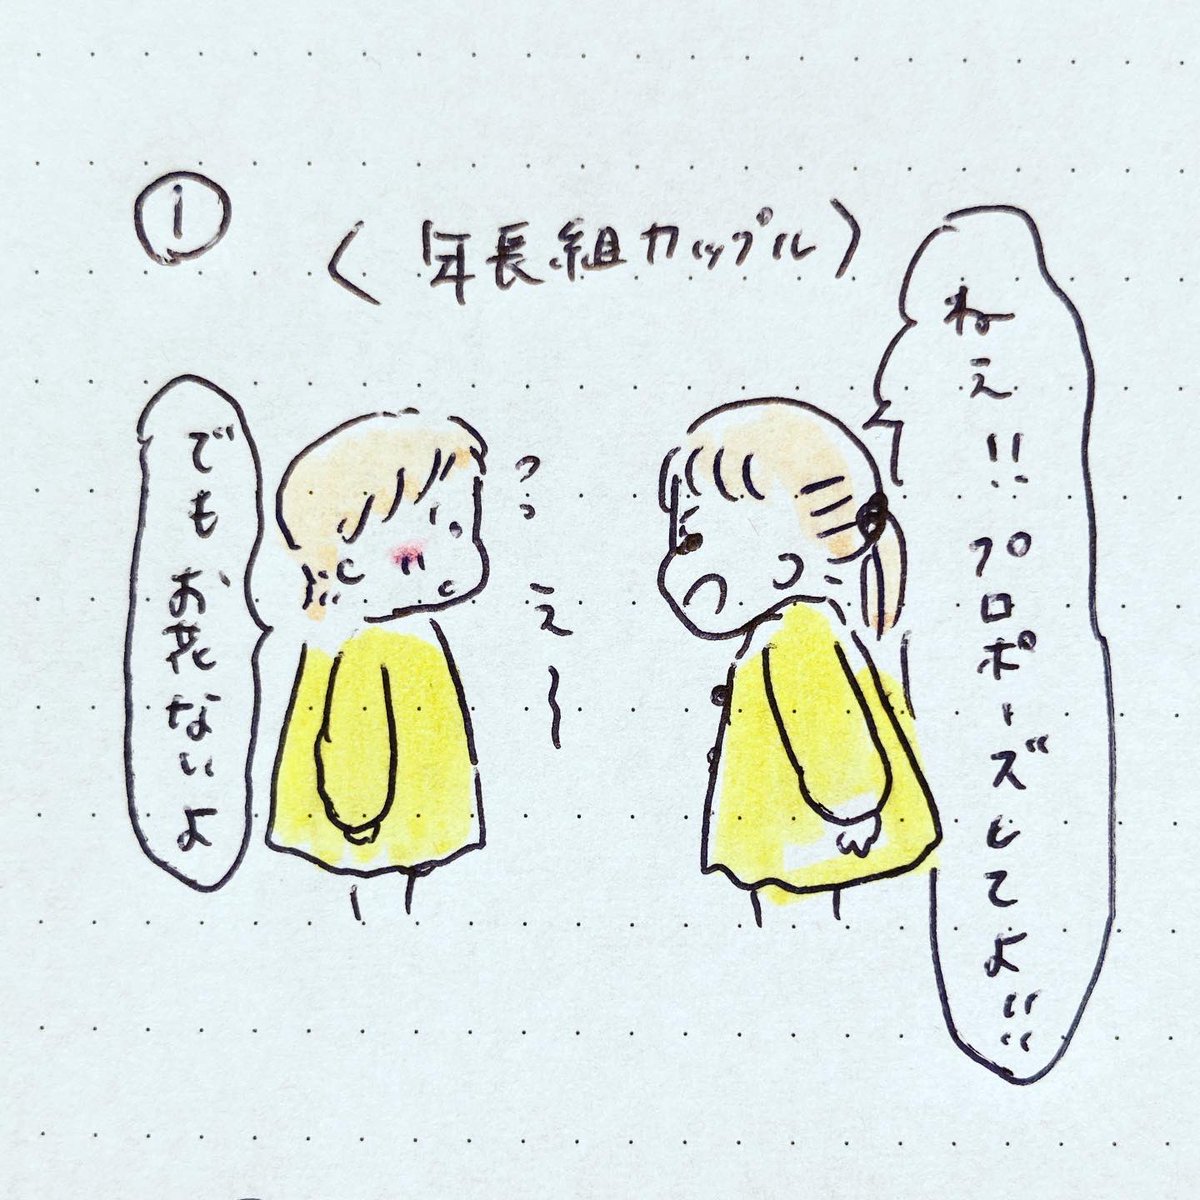 ①
〈年長組カップル〉
ねえ!!プロポーズしてよ!!
え〜
でもお花ないよ